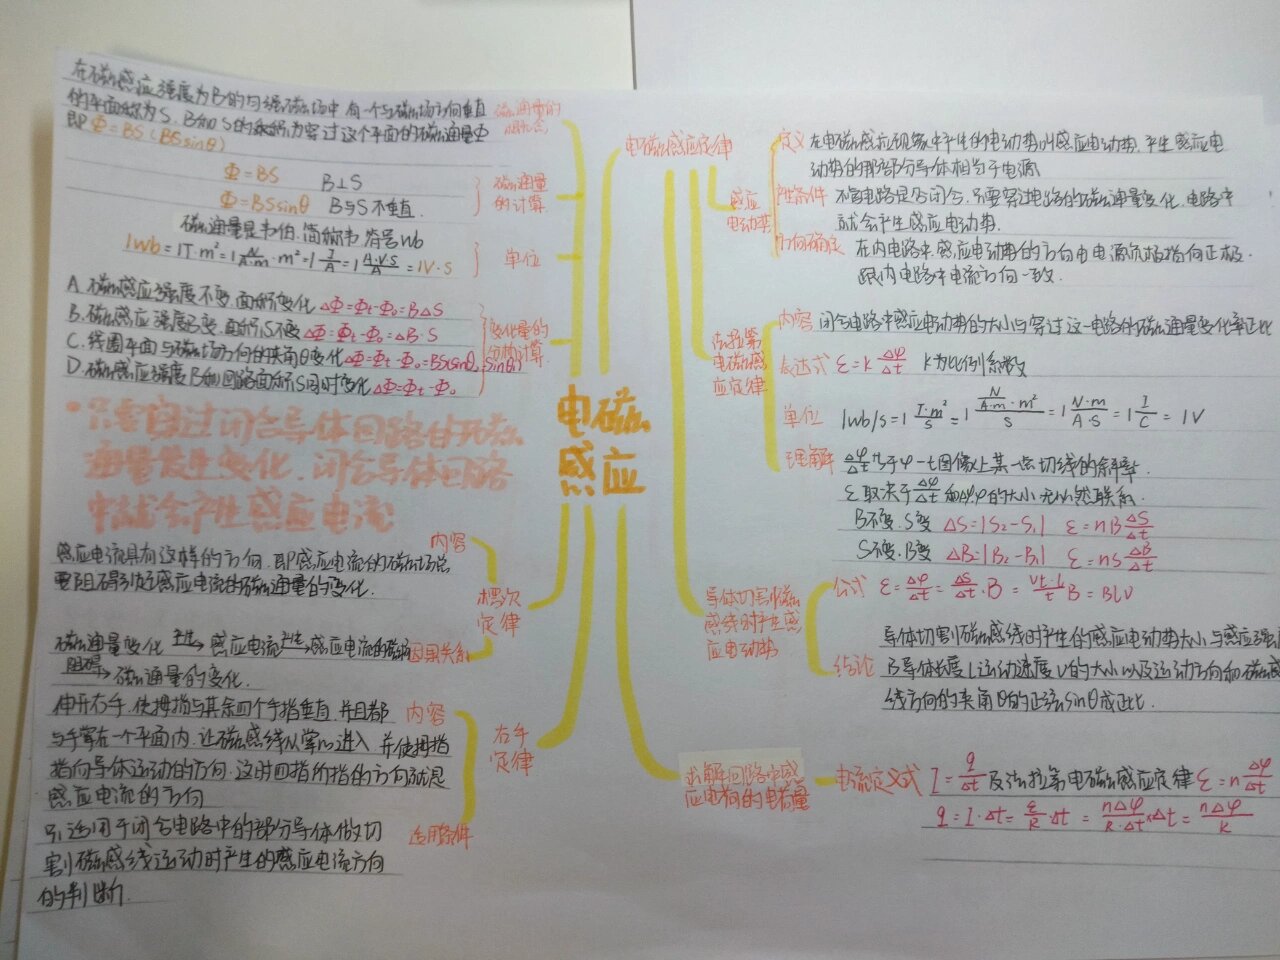 在磁感应强度为B的匀强磁场中有一个与磁场方向垂直
的平面称为S、B和S的乘积称为穿过这个平面的磁通量Φ
即Φ=BS(BSsinθ)
磁通量的
概念
Φ=BS B⊥S
Φ=BSsinθ B与S不垂直.
磁通量
的计算
磁通量是韦伯.简称韦 符号Wb
1wb=1T·m²=1N/A·m·m²=1J/A=1A·V·S/A=1V·S
单位
A.磁感应强度不变.面积变化ΔΦ=Φt-Φ₀=BΔS
B.磁感应强度改变.面积S不变ΔΦ=Φt-Φ₀=ΔB·S
C.线圈平面与磁场方向的夹角θ变化ΔΦ=Φt-Φ₀=BS(sinθ₀-sinθ1)
D.磁感应强度B和回路面积S同时变化ΔΦ=Φt-Φ₀
变化量的
分析计算
·只要穿过闭合导体回路的磁
通量发生变化.闭合导体回路
中就会产生感应电流
电磁
感应
内容
感应电流具有这样的方向.即感应电流的磁场总
要阻碍引起感应电流的磁通量的变化.
楞次
定律
磁通量变化 产生→感应电流产生→感应电流的磁场
因果关系
阻碍→磁通量的变化.
伸开右手.使拇指与其余四个手指垂直.并且都
内容
与手掌在一个平面内.让磁感线从掌心进入 并使拇指
指向导体运动的方向.这时四指所指的方向就是
感应电流的方向
右手
定律
适用于闭合电路中的部分导体做切
适用条件
割磁感线运动时产生的感应电流方向
的判断.
电磁感应定律
感应
电动势
定义 在电磁感应现象中产生的电动势叫感应电动势.产生感应电
动势的那部分导体相当于电源.
产生条件 不管电路是否闭合.只要穿过电路的磁通量变化.电路中
就会产生感应电动势.
方向确定 在内电路中.感应电动势的方向由电源负极指向正极.
跟内电路中电流方向一致.
法拉第
电磁感
应定律
内容 闭合电路中感应电动势的大小与穿过这一电路的磁通量变化率正比
表达式 ε=k Δφ/Δt k为比例系数
单位 1wb/s=1 T·m²/S=1 N/A·m·m²/S=1 N·m/A·S=1 J/C=1V
理解 Δφ/Δt 为φ-t图像上某一点切线的斜率.
ε取决于Δφ/Δt 和Δφ.φ的大小无必然联系.
B不变.S变 ΔS=|S₂-S₁| ε=nB ΔS/Δt
S不变.B变 ΔB=|B₂-B₁| ε=nS ΔB/Δt
导体切割磁
感线时产生感
应电动势
公式 ε=Δφ/Δt=ΔS/Δt·B=Vt·L/t B=BLV
结论
导体切割磁感线时产生的感应电动势大小与感应强
B导体长度L运动速度V的大小以及运动方向和磁感
线方向的夹角θ的正弦sinθ成正比.
求解回路中感
应电荷的电荷量
电流定义式 I=q/Δt及法拉第电磁感应定律ε=nΔφ/Δt
q=I·Δt=ε/R·Δt=nΔφ/R·Δt×Δt=nΔφ/R